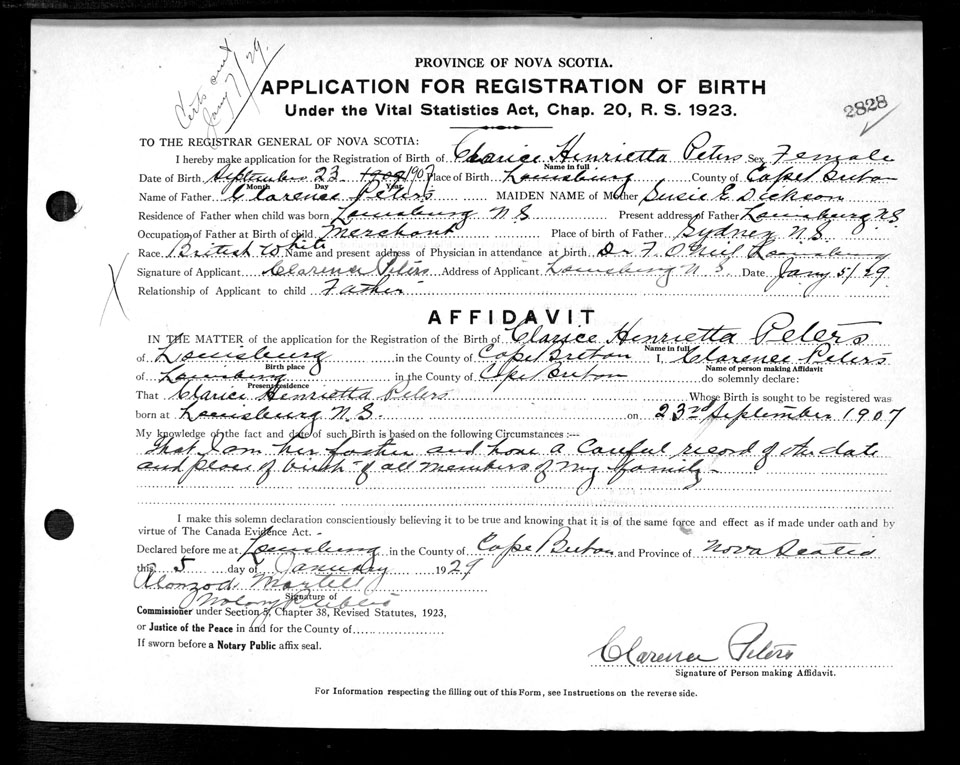 Certs sent
Jany 7/29.
PROVINCE OF NOVA SCOTIA.
APPLICATION FOR REGISTRATION OF BIRTH
Under the Vital Statistics Act, Chap. 20, R. S. 1923.
2828
TO THE REGISTRAR GENERAL OF NOVA SCOTIA:
I hereby make application for the Registration of Birth of Clarice Henrietta Peters Sex Female
Name in full
Date of Birth September 23 1908 1907 Place of Birth Louisburg County of Cape Breton
Month Day Year
Name of Father Clarence Peters MAIDEN NAME of Mother Susie E. Dickson
Residence of Father when child was born Louisburg N S Present address of Father Louisburg N.S
Occupation of Father at Birth of child Merchant Place of birth of Father Sydney N.S.
Race British White Name and present address of Physician in attendance at birth Dr F. O'Neil Louisburg
Signature of Applicant Clarence Peters Address of Applicant Louisburg N S Date Jany 5/29
Relationship of Applicant to child Father
AFFIDAVIT
IN THE MATTER of the application for the Registration of the Birth of Clarice Henrietta Peters
Name in full
of Louisburg in the County of Cape Breton I, Clarence Peters
Birth place Name of person making Affidavit
of Louisburg in the County of Cape Breton do solemnly declare:
Present residence
That Clarice Henrietta Peters Whose Birth is sought to be registered was
born at Louisburg N.S. on 23rd September 1907
My knowledge of the fact and date of such Birth is based on the following Circumstances :—
That I am her father and have a careful record of the date
and place of birth of all members of my family
I make this solemn declaration conscientiously believing it to be true and knowing that it is of the same force and effect as if made under oath and by
virtue of The Canada Evidence Act.
Declared before me at Louisburg in the County of Cape Breton and Province of Nova Scotia
this 5 day of January 1929
Martell
Signature of
Notary Public
Commissioner under Section 5, Chapter 38, Revised Statutes, 1923,
or Justice of the Peace in and for the County of
If sworn before a Notary Public affix seal.
Clarence Peters
Signature of Person making Affidavit.
For Information respecting the filling out of this Form, see Instructions on the reverse side.